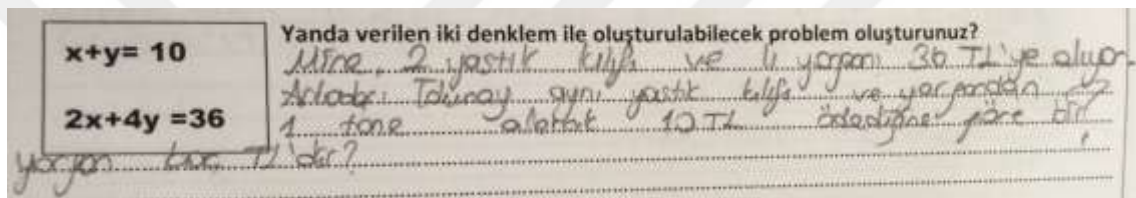 x+y= 10
2x+4y =36
Yanda verilen iki denklem ile oluşturulabilecek problem oluşturunuz?
Mine, 2 yastık kılıfı ve 4 yorganı 36 TL'ye alıyor.
Arkadaşı Tolunay aynı yastık kılıfı ve yorgandan
1 tane alarak 10 TL ödediğine göre bir
yorgan kaç TL'dir?